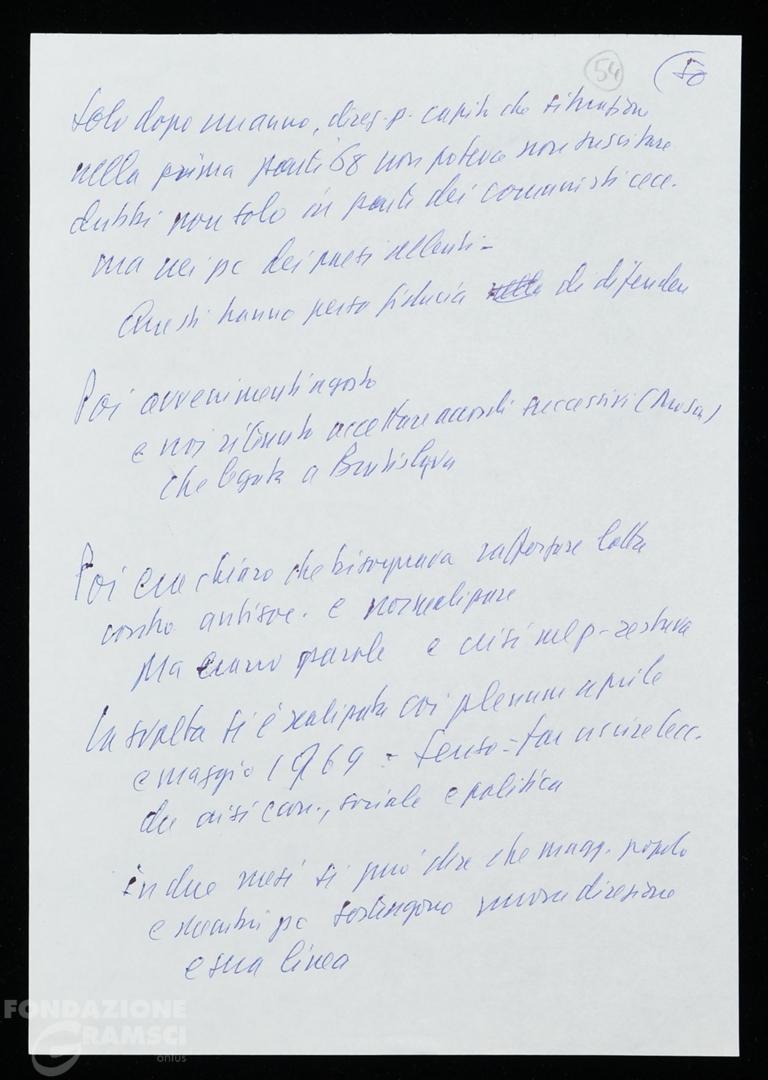 54
50
Solo dopo un anno, direz. p. capito che situazione
nella prima parte '68 non poteva non suscitare
dubbi non solo in parte dei comunisti cec.
ma nei pc dei paesi alleati -
Questi hanno perso fiducia di difendere
Poi avvenimenti agosto
e noi ritenuto accettare accordi successivi (Mosca)
che legata a Bratislava
Poi era chiaro che bisognava rafforzare lotta
contro antisoc. e normalizzare
Ma erano parole e crisi nel p. restava
La svolta si è realizzata coi plenum aprile
e maggio 1969 - senso = far uscire Cec.
da crisi econ., sociale e politica
in due mesi si può dire che magg. popolo
e membri pc sostengono nuova direzione
e sua linea
FONDAZIONE
GRAMSCI
onlus